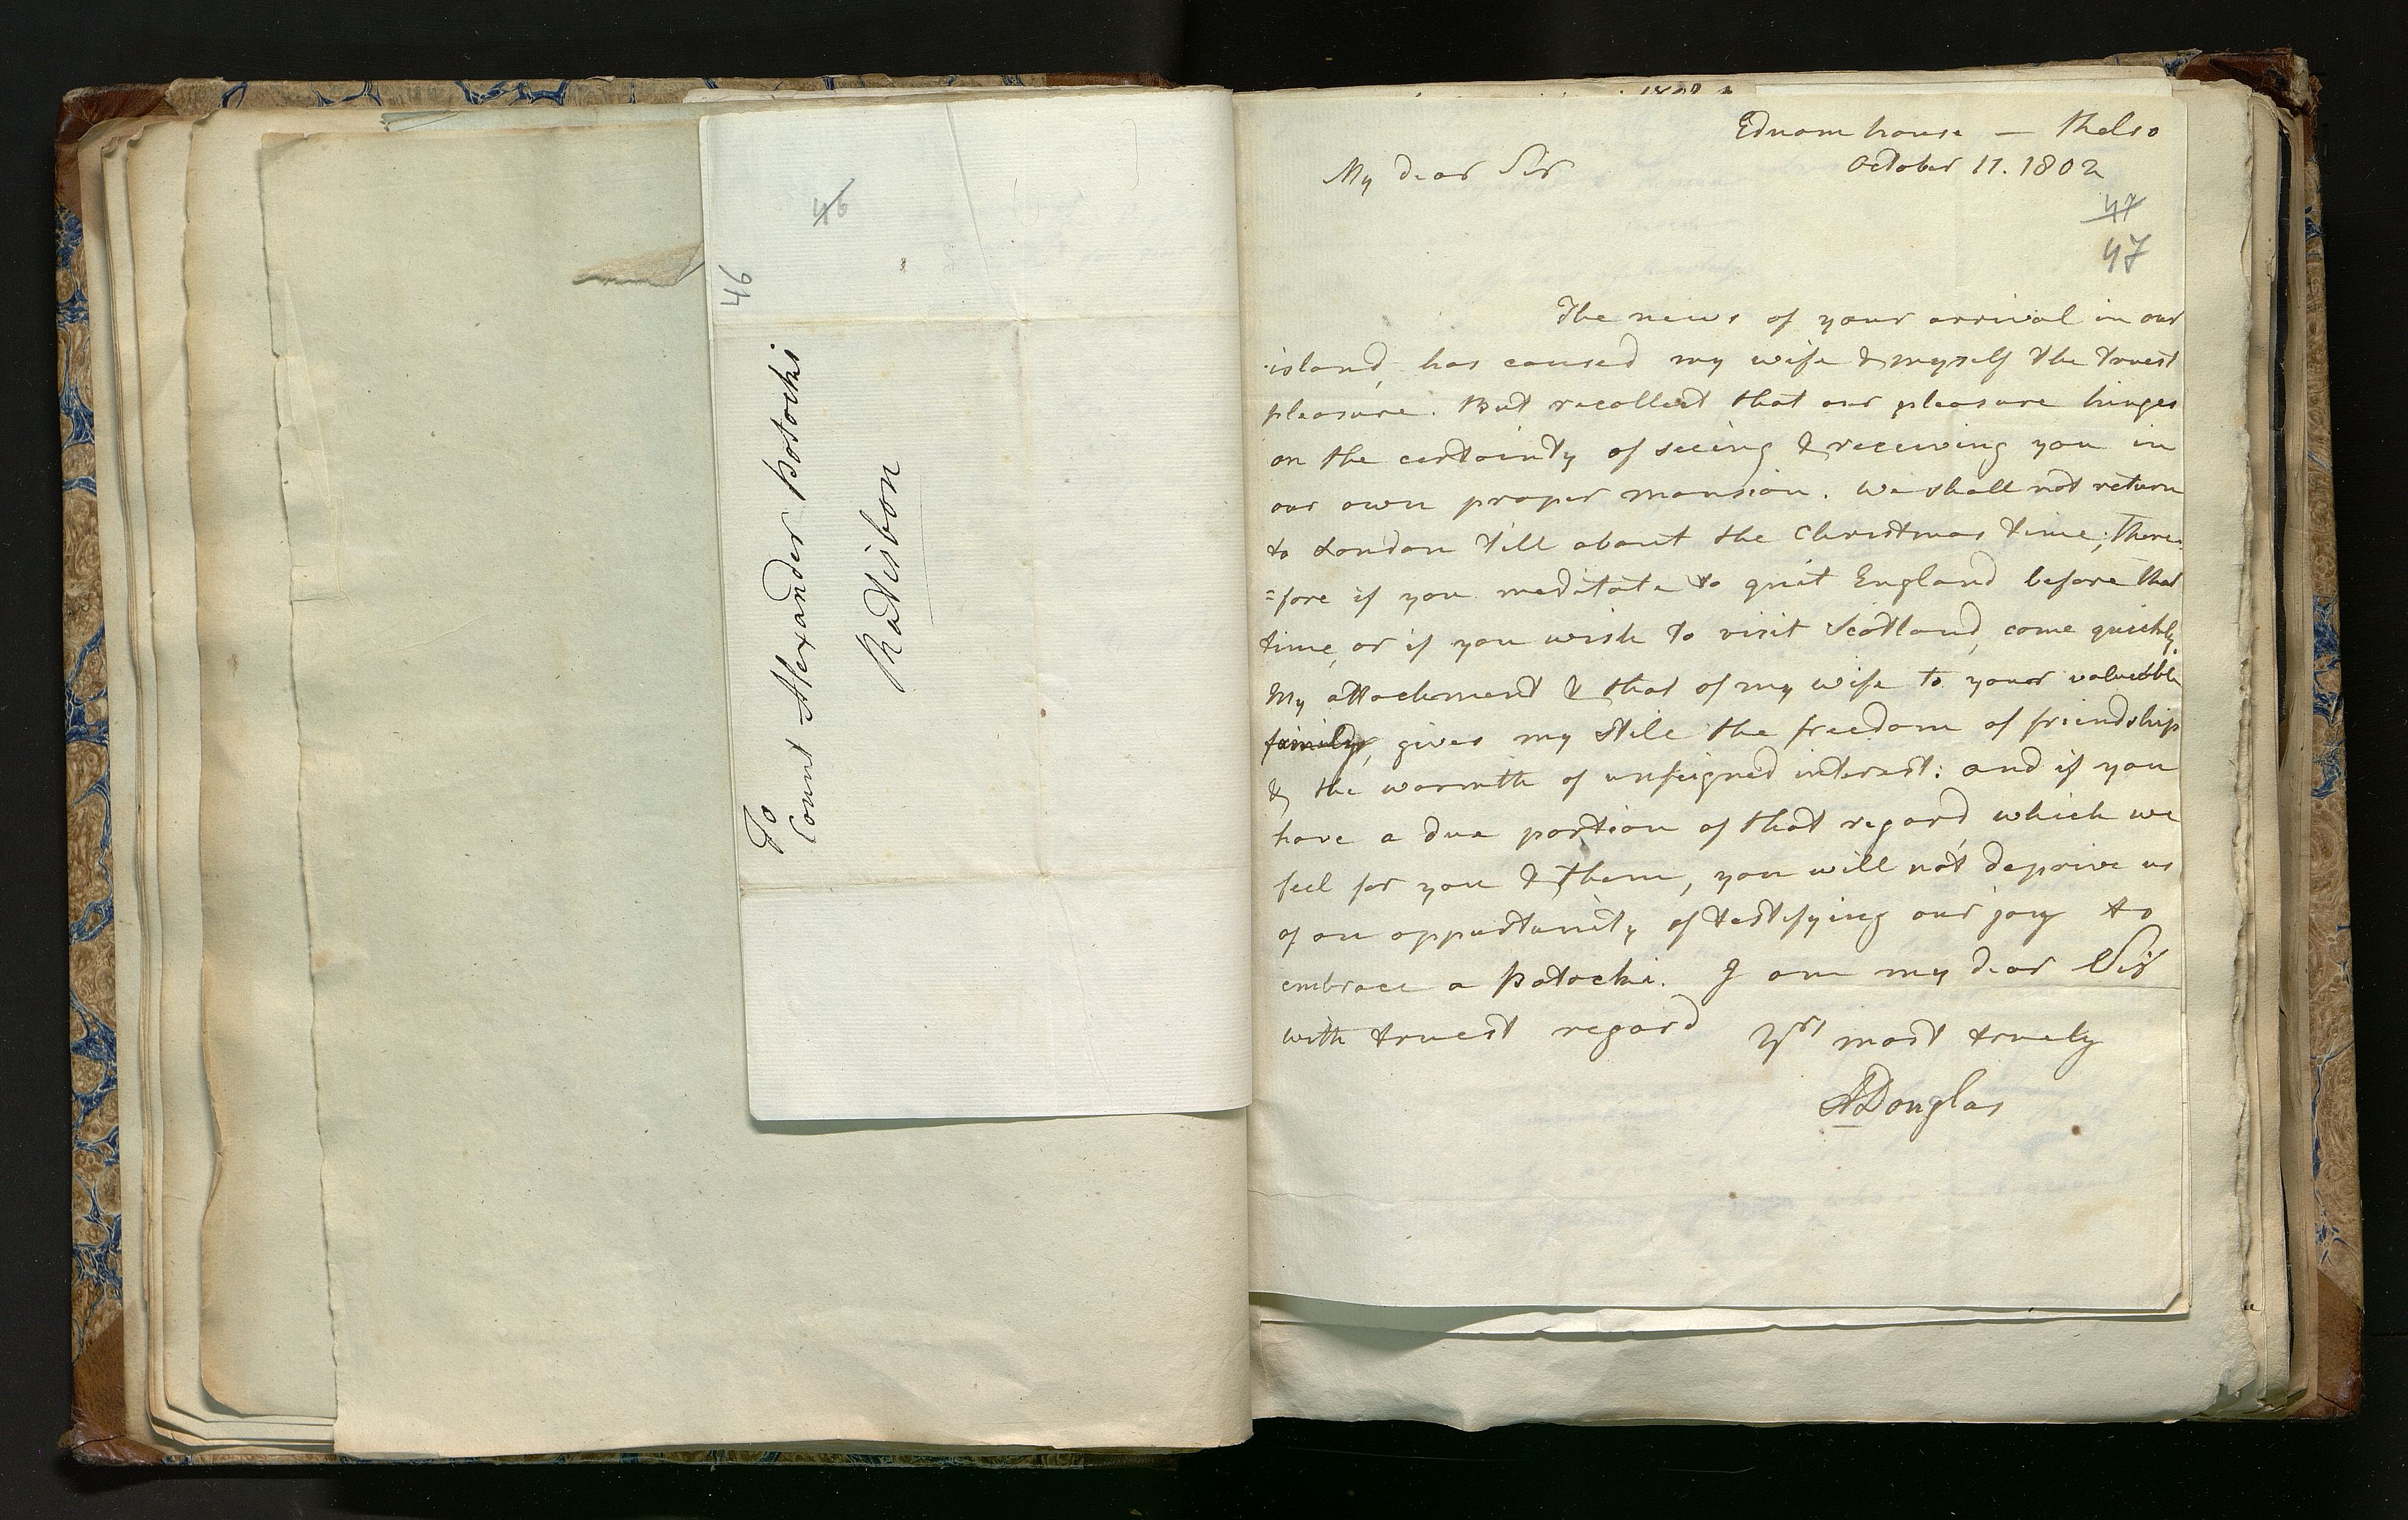 46
46
To
Count Alexander Potocki
Ratisbon
Ednam house — Kelso
October 11. 1802
My dear Sir
47
47
The news of your arrival in our
island, has caused my wife & myself the truest
pleasure. But recollect that our pleasure hinges
on the certainty of seeing & receiving you in
our own proper mansion. We shall not return
to London till about the Christmas time; there-
=fore if you meditate to quit England before that
time, or if you wish to visit Scotland, come quickly.
My attachment & that of my wife to your valuable
family, gives my stile the freedom of friendship
& the warmth of unfeigned interest: and if you
have a due portion of that regard which we
feel for you & them, you will not deprive us
of an oppurtunity of testifying our joy to
embrace a Potocki. I am my dear Sir
with truest regard Yrs most truely
ADouglas